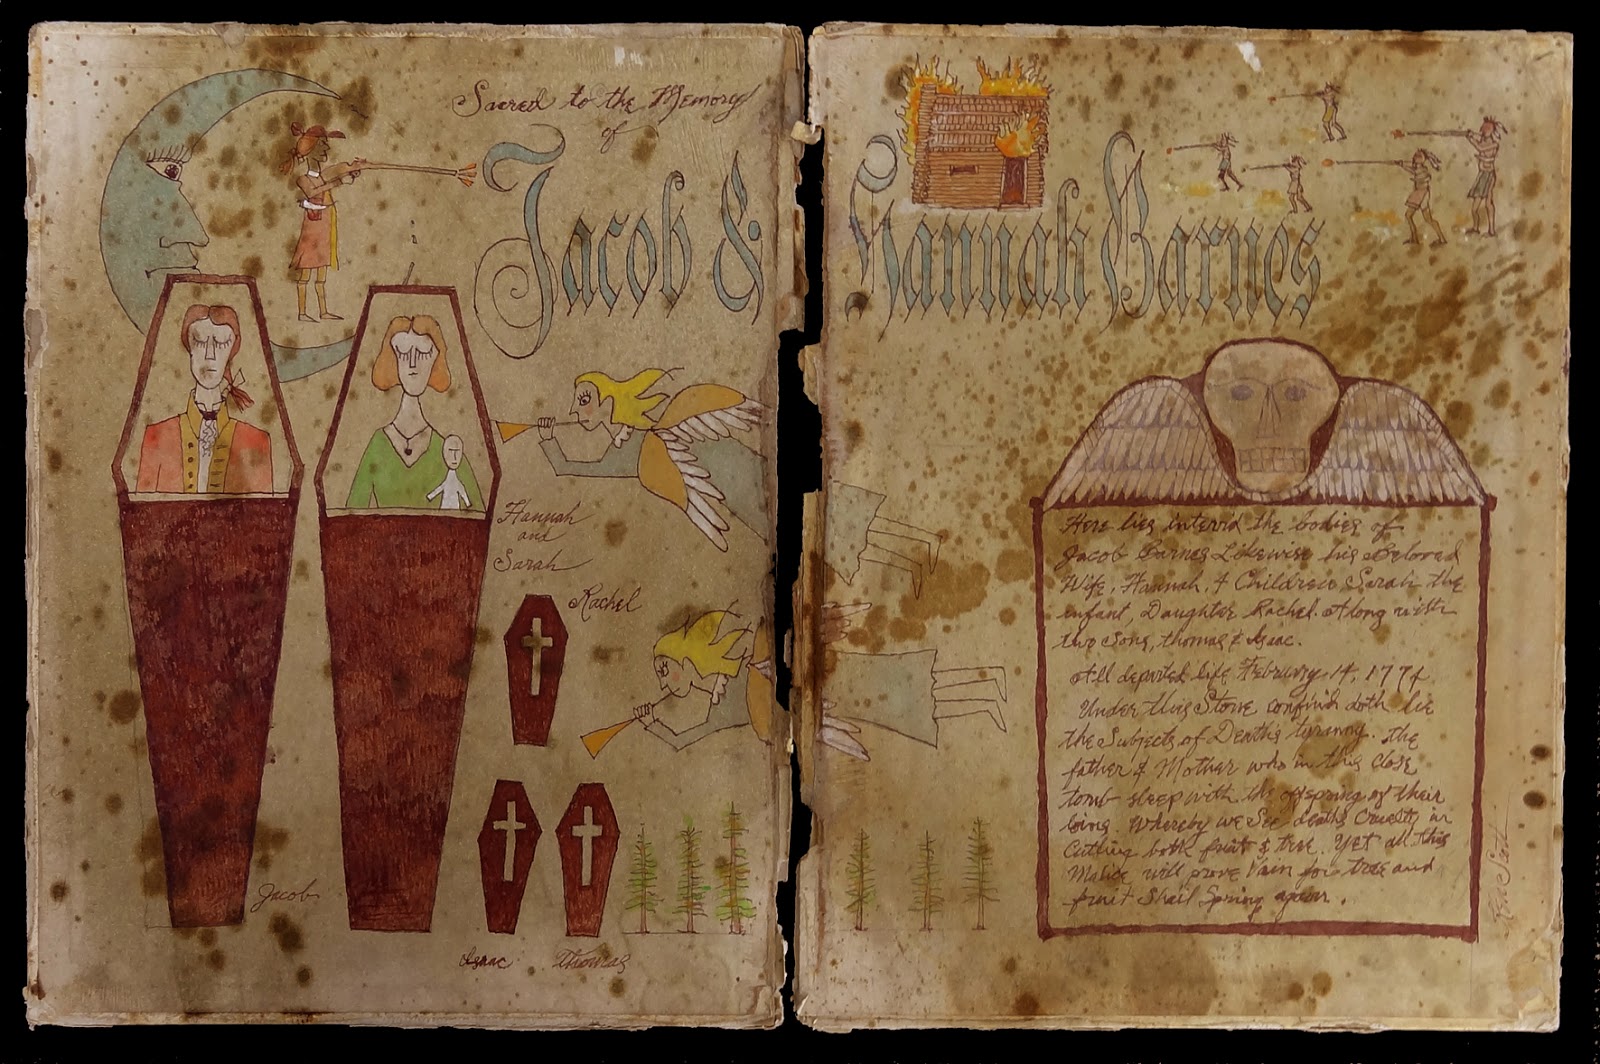 Sacred to the Memory
of
Jacob & Hannah Barnes
Hannah
and
Sarah
Rachel
Jacob
Isaac
Thomas
Here lies interr'd the bodies of
Jacob Barnes Likewise his Beloved
Wife, Hannah, & Children Sarah the
infant, Daughter Rachel. Along with
two Sons, Thomas & Isaac.
All departed life February 14, 177
Under this Stone confin'd doth lie
the Subjects of Deaths tyranny. The
father & Mother who in this close
tomb sleep with the offspring of their
loins. Whereby we See deaths Cruelty in
Cutting both fruit & tree. Yet all this
Malice will prove Vain for tree and
fruit Shall Spring again.